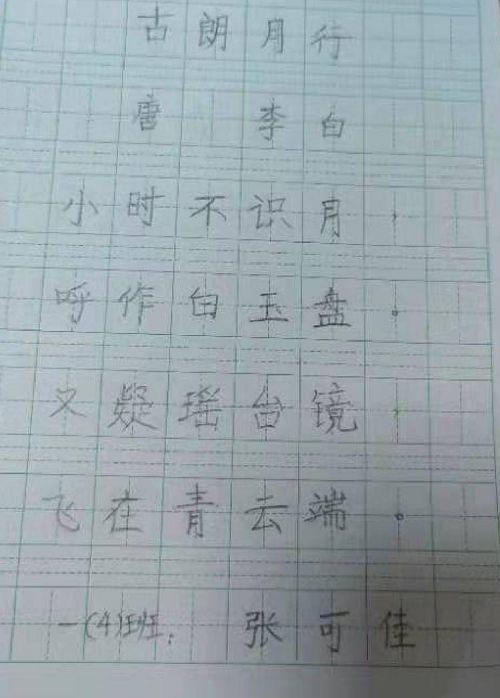 古朗月行
唐 李白
小时不识月，
呼作白玉盘。
又疑瑶台镜，
飞在青云端。
一(4)班： 张可佳